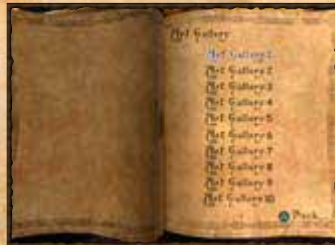 Art Gallery
Art Gallery 1
Art Gallery 2
Art Gallery 3
Art Gallery 4
Art Gallery 5
Art Gallery 6
Art Gallery 7
Art Gallery 8
Art Gallery 9
Art Gallery 10
Back